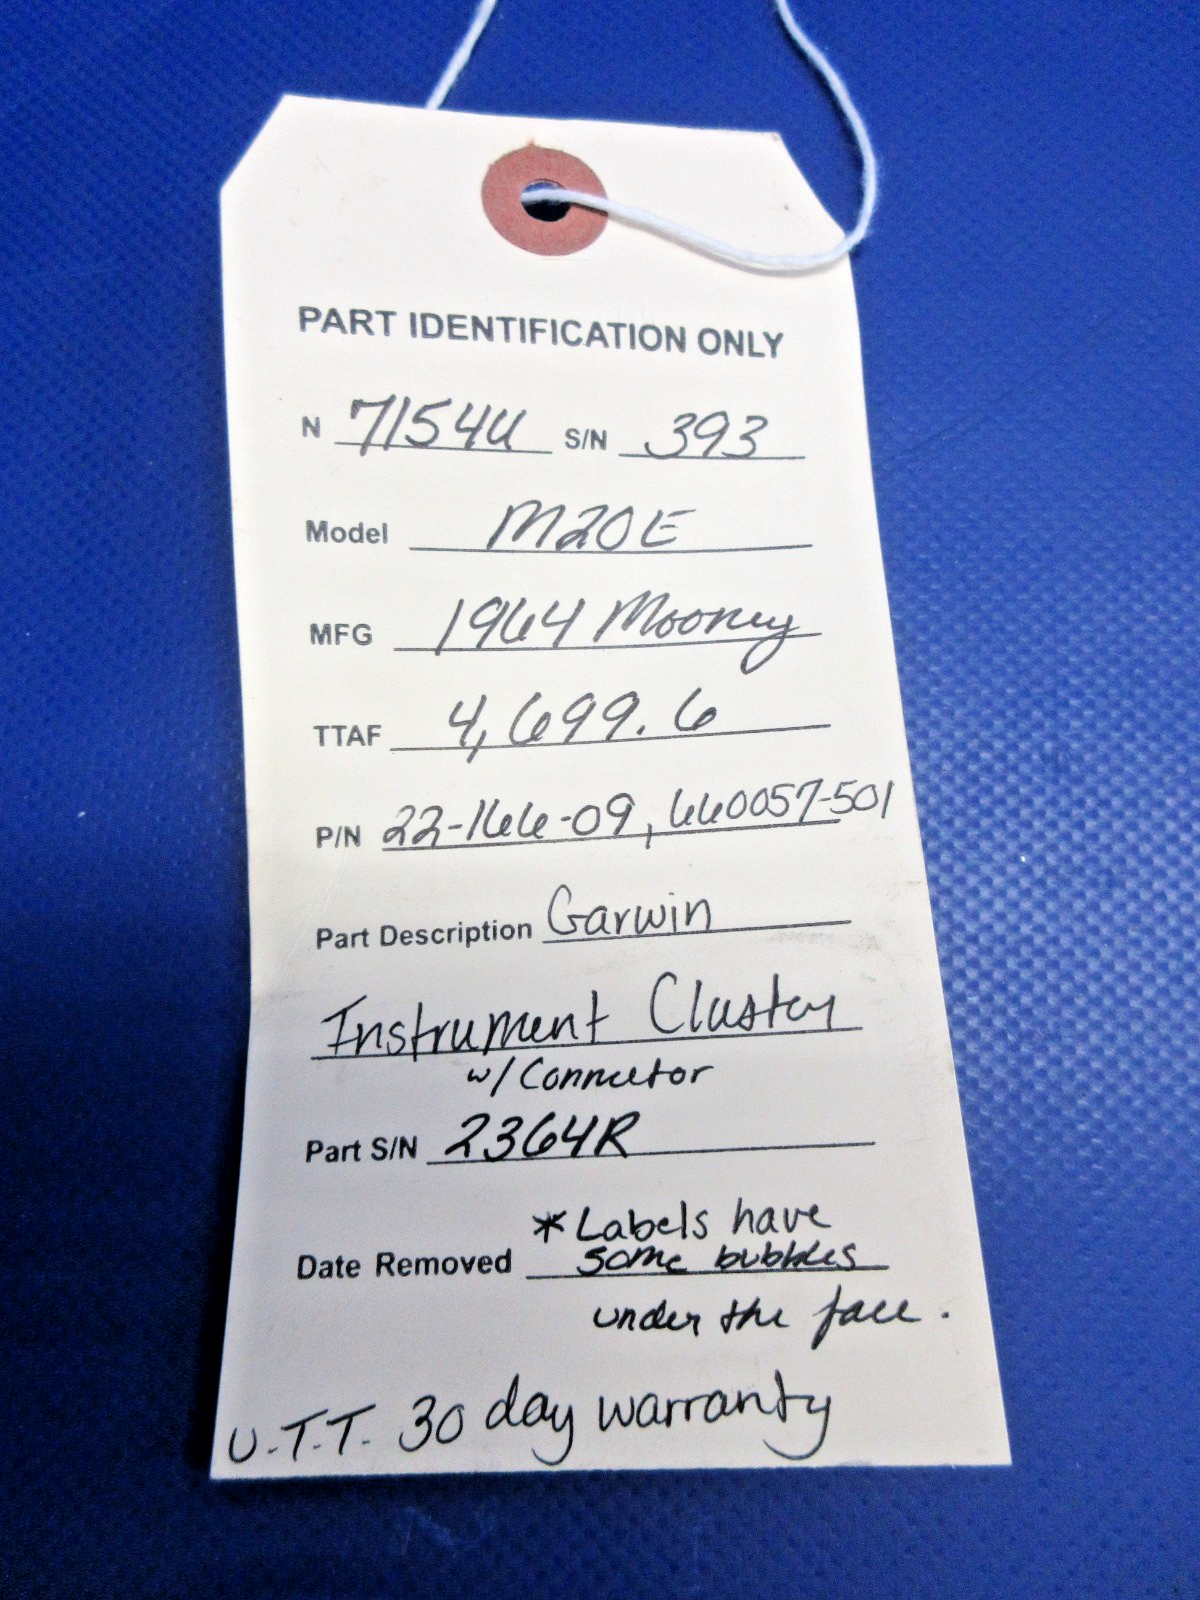 PART IDENTIFICATION ONLY
N 7154U S/N 393
Model M20E
MFG 1964 Mooney
TTAF 4,699.6
P/N 22-166-09, 660057-501
Part Description Garwin
Instrument Cluster
w/ Connector
Part S/N 2364R
* Labels have
Date Removed some bubbles
under the face.
U.T.T. 30 day warranty